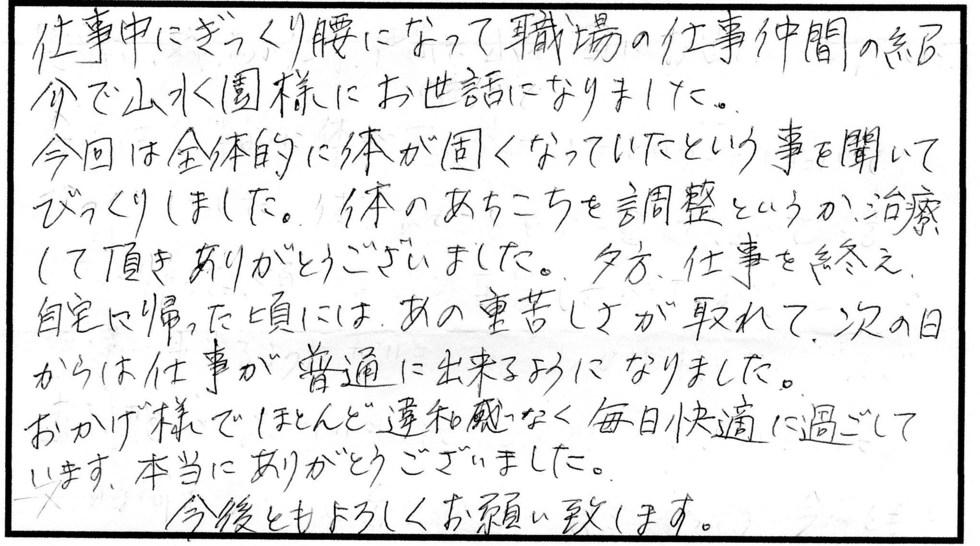 仕事中にぎっくり腰になって職場の仕事仲間の紹
介で山水園様にお世話になりました。
今回は全体的に体が固くなっていたという事を聞いて
びっくりしました。体のあちこちを調整というか、治療
して頂きありがとうございました。夕方、仕事を終え、
自宅に帰った頃には、あの重苦しさが取れて、次の日
からは仕事が普通に出来るようになりました。
おかげ様でほとんど違和感なく毎日快適に過ごして
います。本当にありがとうございました。
今後ともよろしくお願い致します。